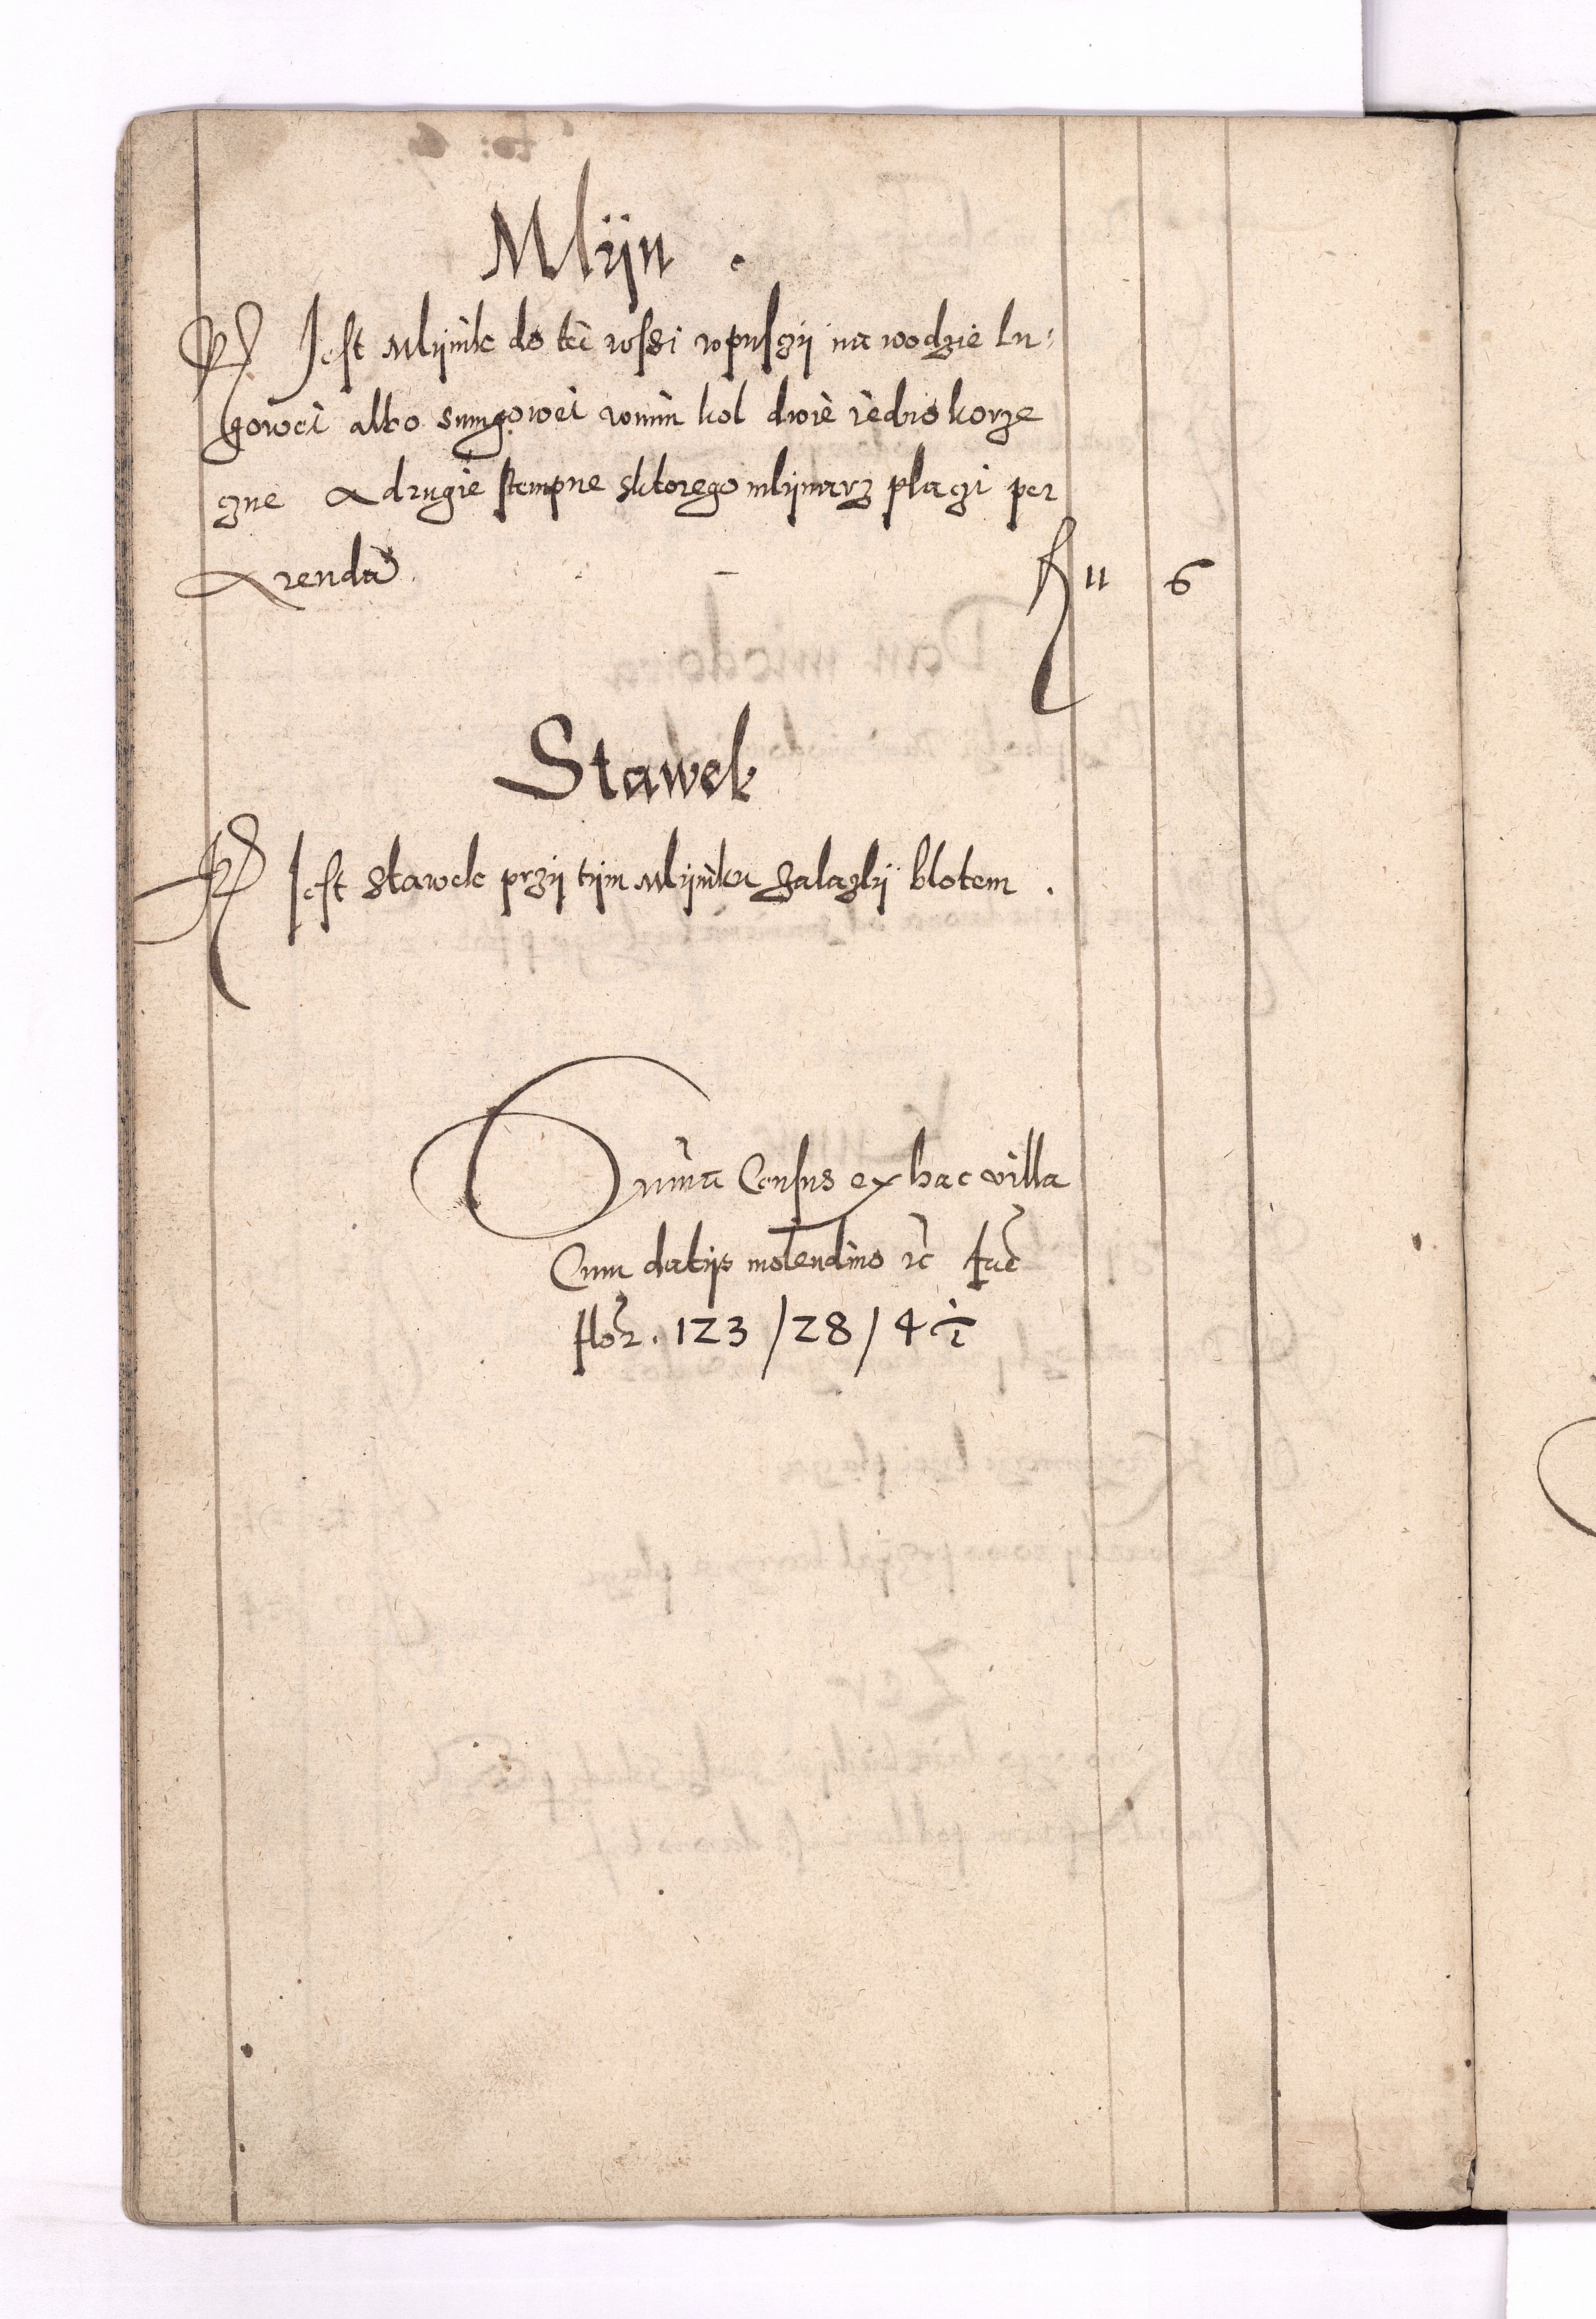 Mlijn .
Jest Mlijnik do tei wssi w puszij na wodzie lu=
gowei albo sumgowei wnim kol dwie iedno korze
czne a drugie stempne sktorego mlijnarz placzi per
Arendã f 11 6
Stawek
Jest Stawek przij tijm Mlijniku Zalazlij blotem .
Suma Census ex hac villa
Cum datijs molendino rc fac
flor . 123 / 28 / 4 ½